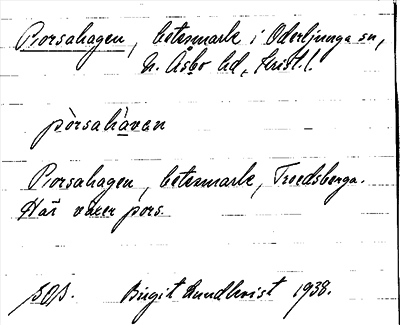 Porsahagen, betesmark i Oderljunga sn,
N. Åsbo hd, Krist.l.
pòrsahàvan
Porsahagen, betesmark, Troedsberga.
Här växer pors.
Birgit Lundkvist 1938.